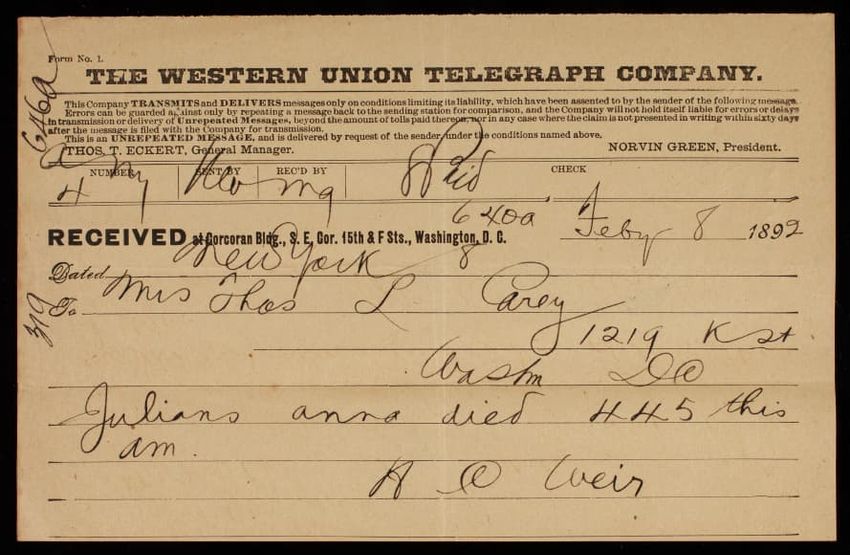 Form No. 1.
THE WESTERN UNION TELEGRAPH COMPANY.
This Company TRANSMITS and DELIVERS messages only on conditions limiting its liability, which have been assented to by the sender of the following message.
Errors can be guarded against only by repeating a message back to the sending station for comparison, and the Company will not hold itself liable for errors or delays
in transmission or delivery of Unrepeated Messages, beyond the amount of tolls paid thereon, nor in any case where the claim is not presented in writing within sixty days
after the message is filed with the Company for transmission.
This is an UNREPEATED MESSAGE, and is delivered by request of the sender, under the conditions named above.
THOS. T. ECKERT, General Manager. NORVIN GREEN, President.
NUMBER SENT BY REC'D BY CHECK
4 ny mq Paid
640a
RECEIVED at Corcoran Bldg., S. E. Cor. 15th & F Sts., Washington, D. C. Feby 8 1892
Dated New York 8
To Mrs Thos L Carey
1219 K st
Washn DC
Julians anna died 445 this
am.
Weir
646a
319